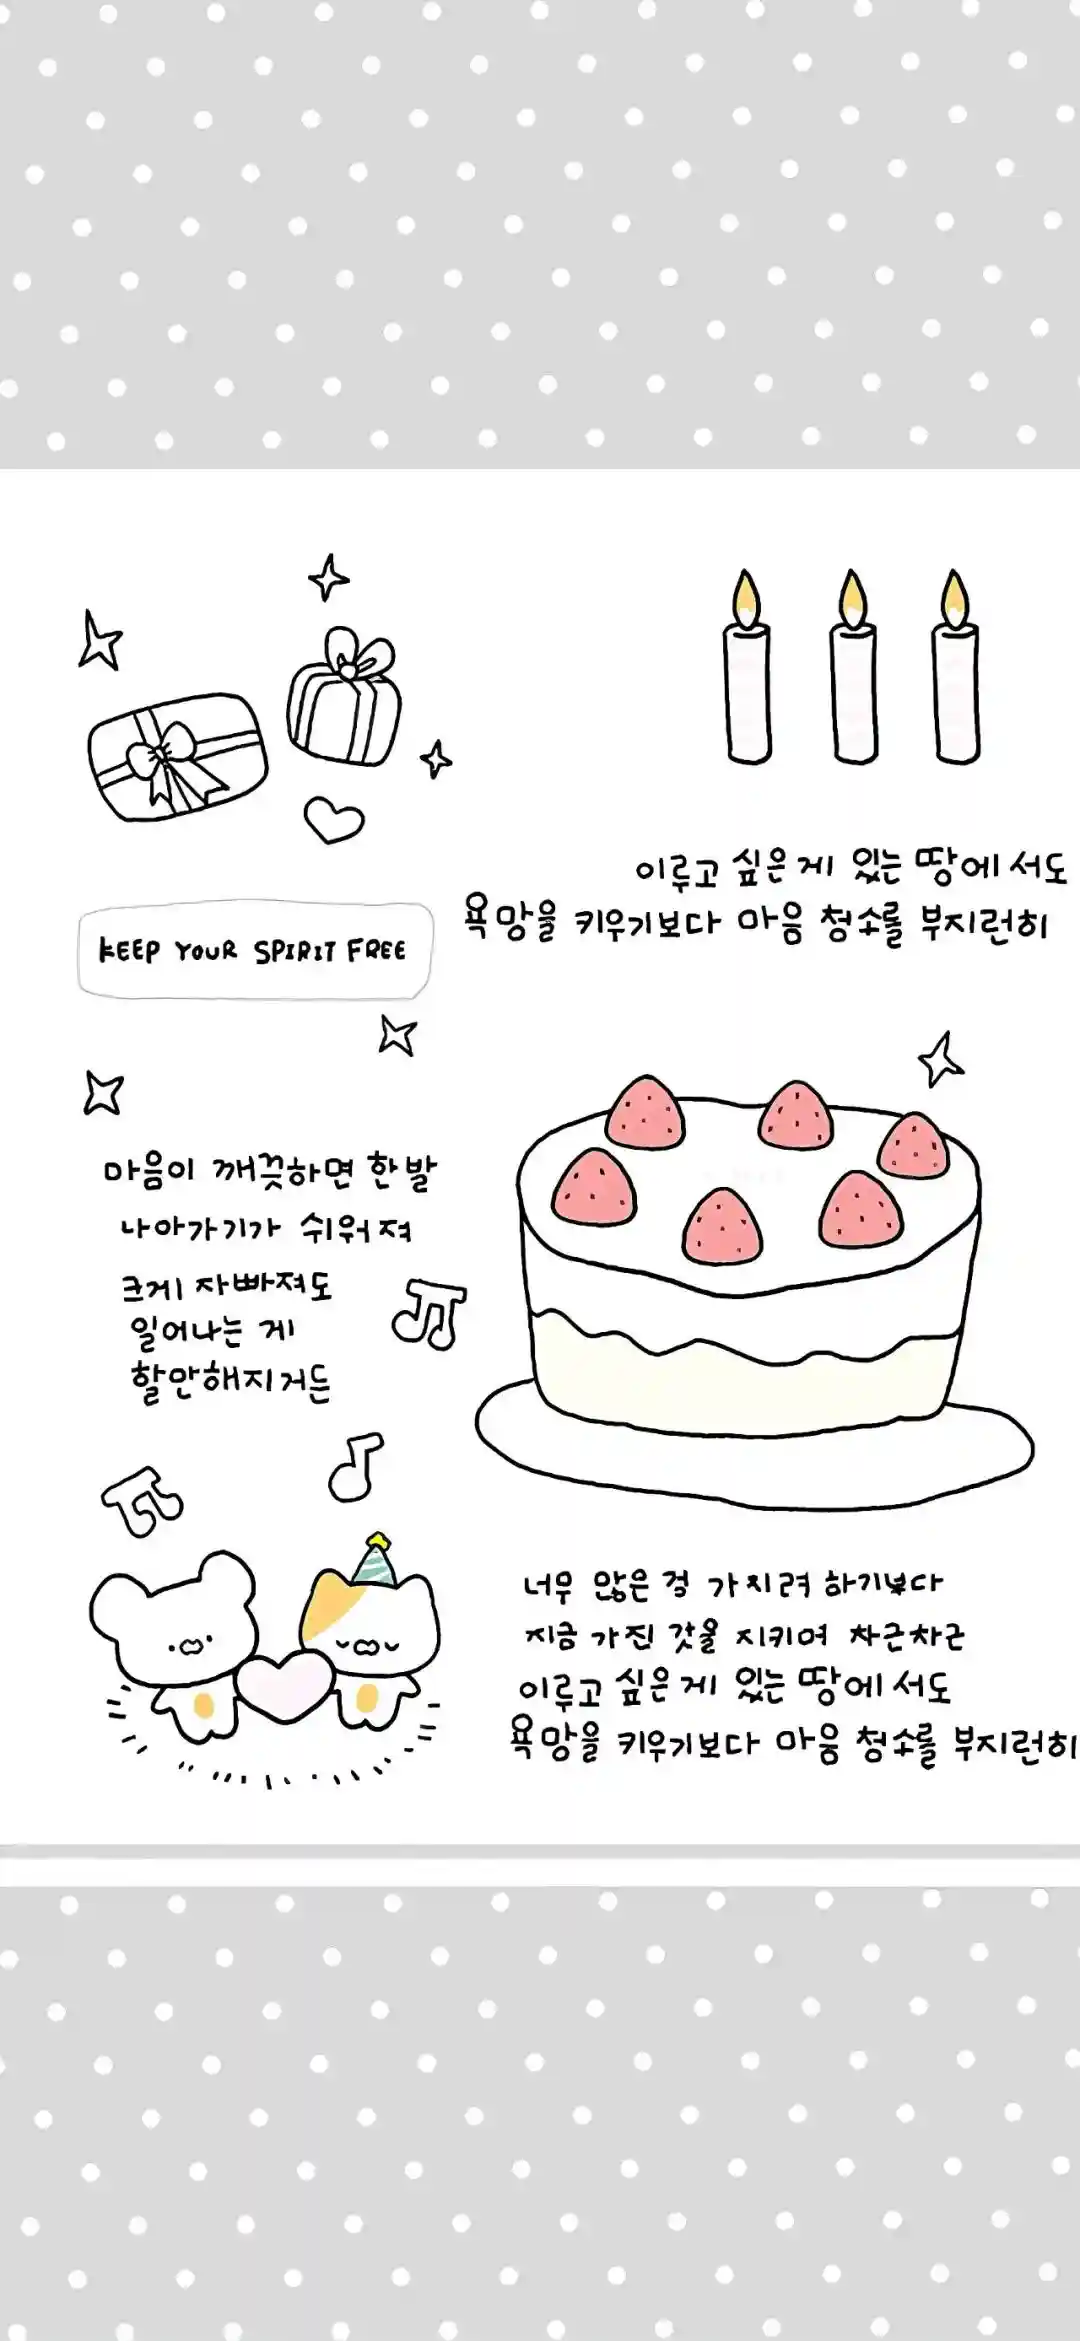 이루고 싶은 게 있는 땅에서도
욕망을 키우기보다 마음 청소를 부지런히
KEEP YOUR SPIRIT FREE
마음이 깨끗하면 한 발
나아가기가 쉬워져
크게 자빠져도
일어나는 게
할만해지거든
너무 많은 걸 가지려 하기보다
지금 가진 것을 지키며 차근차근
이루고 싶은 게 있는 땅에서도
욕망을 키우기보다 마음 청소를 부지런히